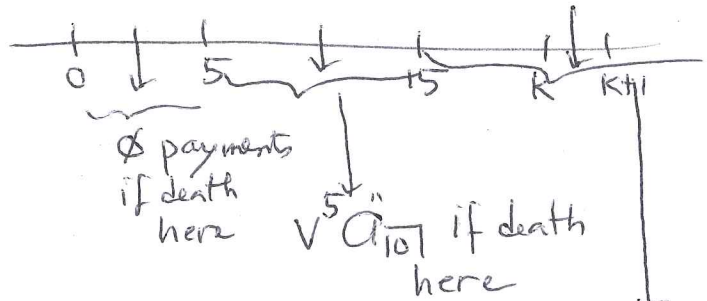 0 5 15 K K+1
Ø payments
if death
here
v⁵ ä₁₀⌉ if death
here